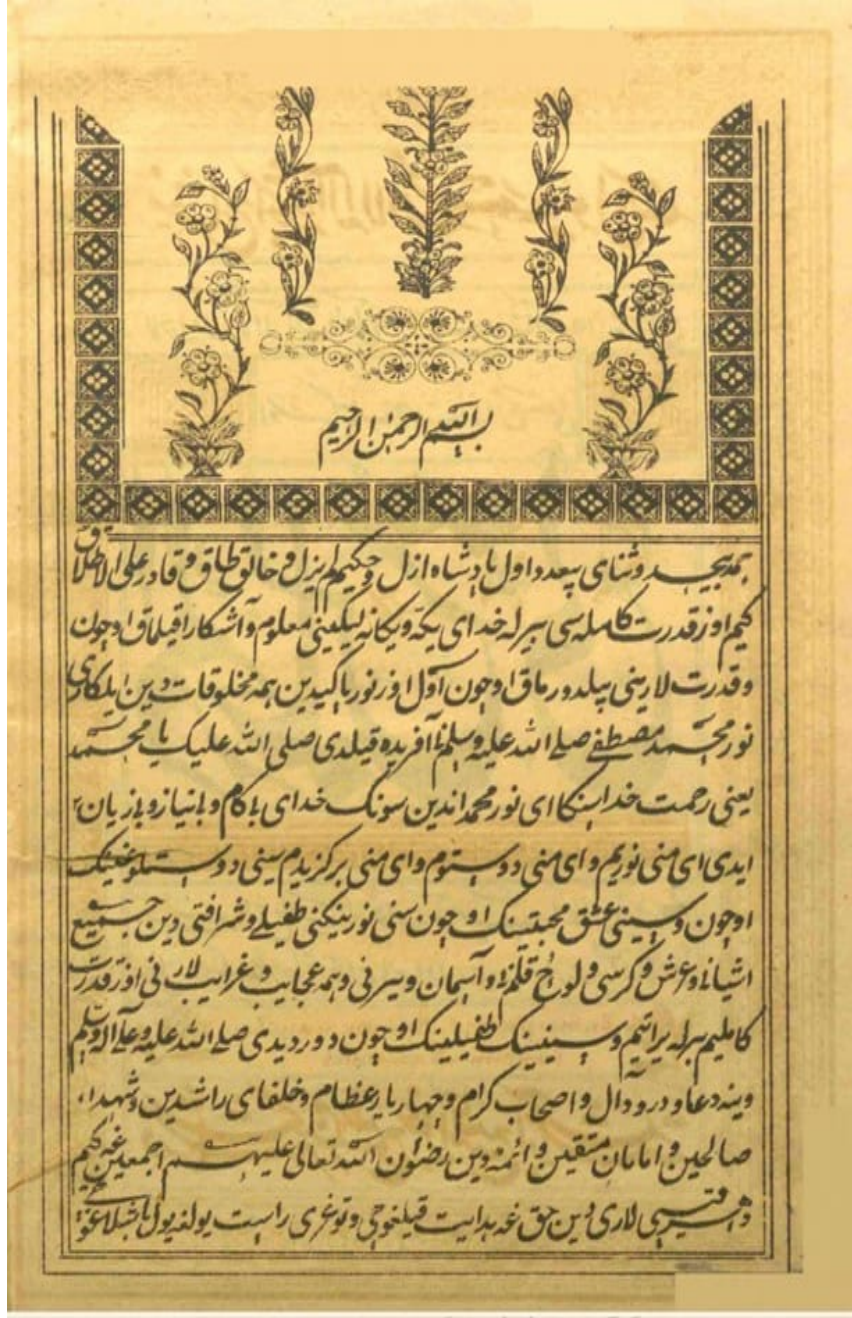 بسم الله الرحمن الرحیم
حمد بیحد وثنای بیعدد اول پادشاه ازل وحکیم لم یزل وخالق طاق وقادر علی الاطلاق
کیم اوز قدرت کامله سی بیرله خدای یکه ویکانه لیکینی معلوم وآشکارا قیلماق اوچون
وقدرت لارینی بیلدورماق اوچون آول اوز نور پاکیدین همه مخلوقات دین ایلکاری
نور محمد مصطفے صلے الله علیه وسلم نا آفریده قیلدی صلی الله علیک یا محمد
یعنی رحمت خدا سنکا ای نور محمد اندین سونک خدای باکام وبانیاز وبازیان
ایدی ای منی نوریم وای منی دوستوم وای منی برکزیدم سینی دوستلوغینک
اوچون وسینی عشق محبتینک اوچون سنی نورینکنی طفیلے وشرافتی دین جمیع
اشیانا وعرش وکرسی ولوح قلم نا وآسمان ویرنی وهمه عجایب وغرایب لارنی اوز قدرت
کاملیم برله یراتیم وسینینک طفیلینک اوچون دور دیدی صلے الله علیه وعلے آله وسلم
وینه دعا ودرود آل واصحاب کرام وچهار یار عظام وخلفای راشدین وشهداء
صالحین وامامان متقین وائمه دین رضوان الله تعالی علیهم اجمعین غه کیم
لاری دین حق غه هدایت قیلغوچی وتوغری راست یولغه یول باشلاغو